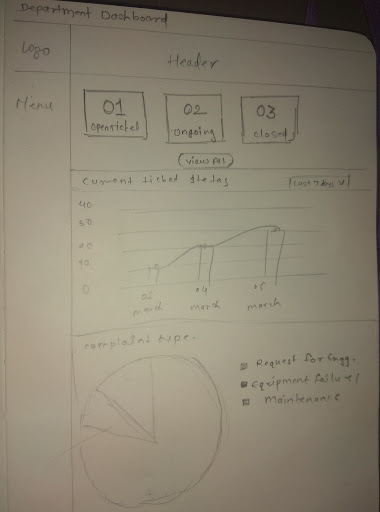 Department Dashboard
Logo
Header
Menu
01
openticket
02
ongoing
03
closed
(view all)
Current ticked status
Last 7 days v
40
30
20
10
0
03
march
04
march
05
march
complaint type.
Request for Engg.
Equipment failure/
Maintenance